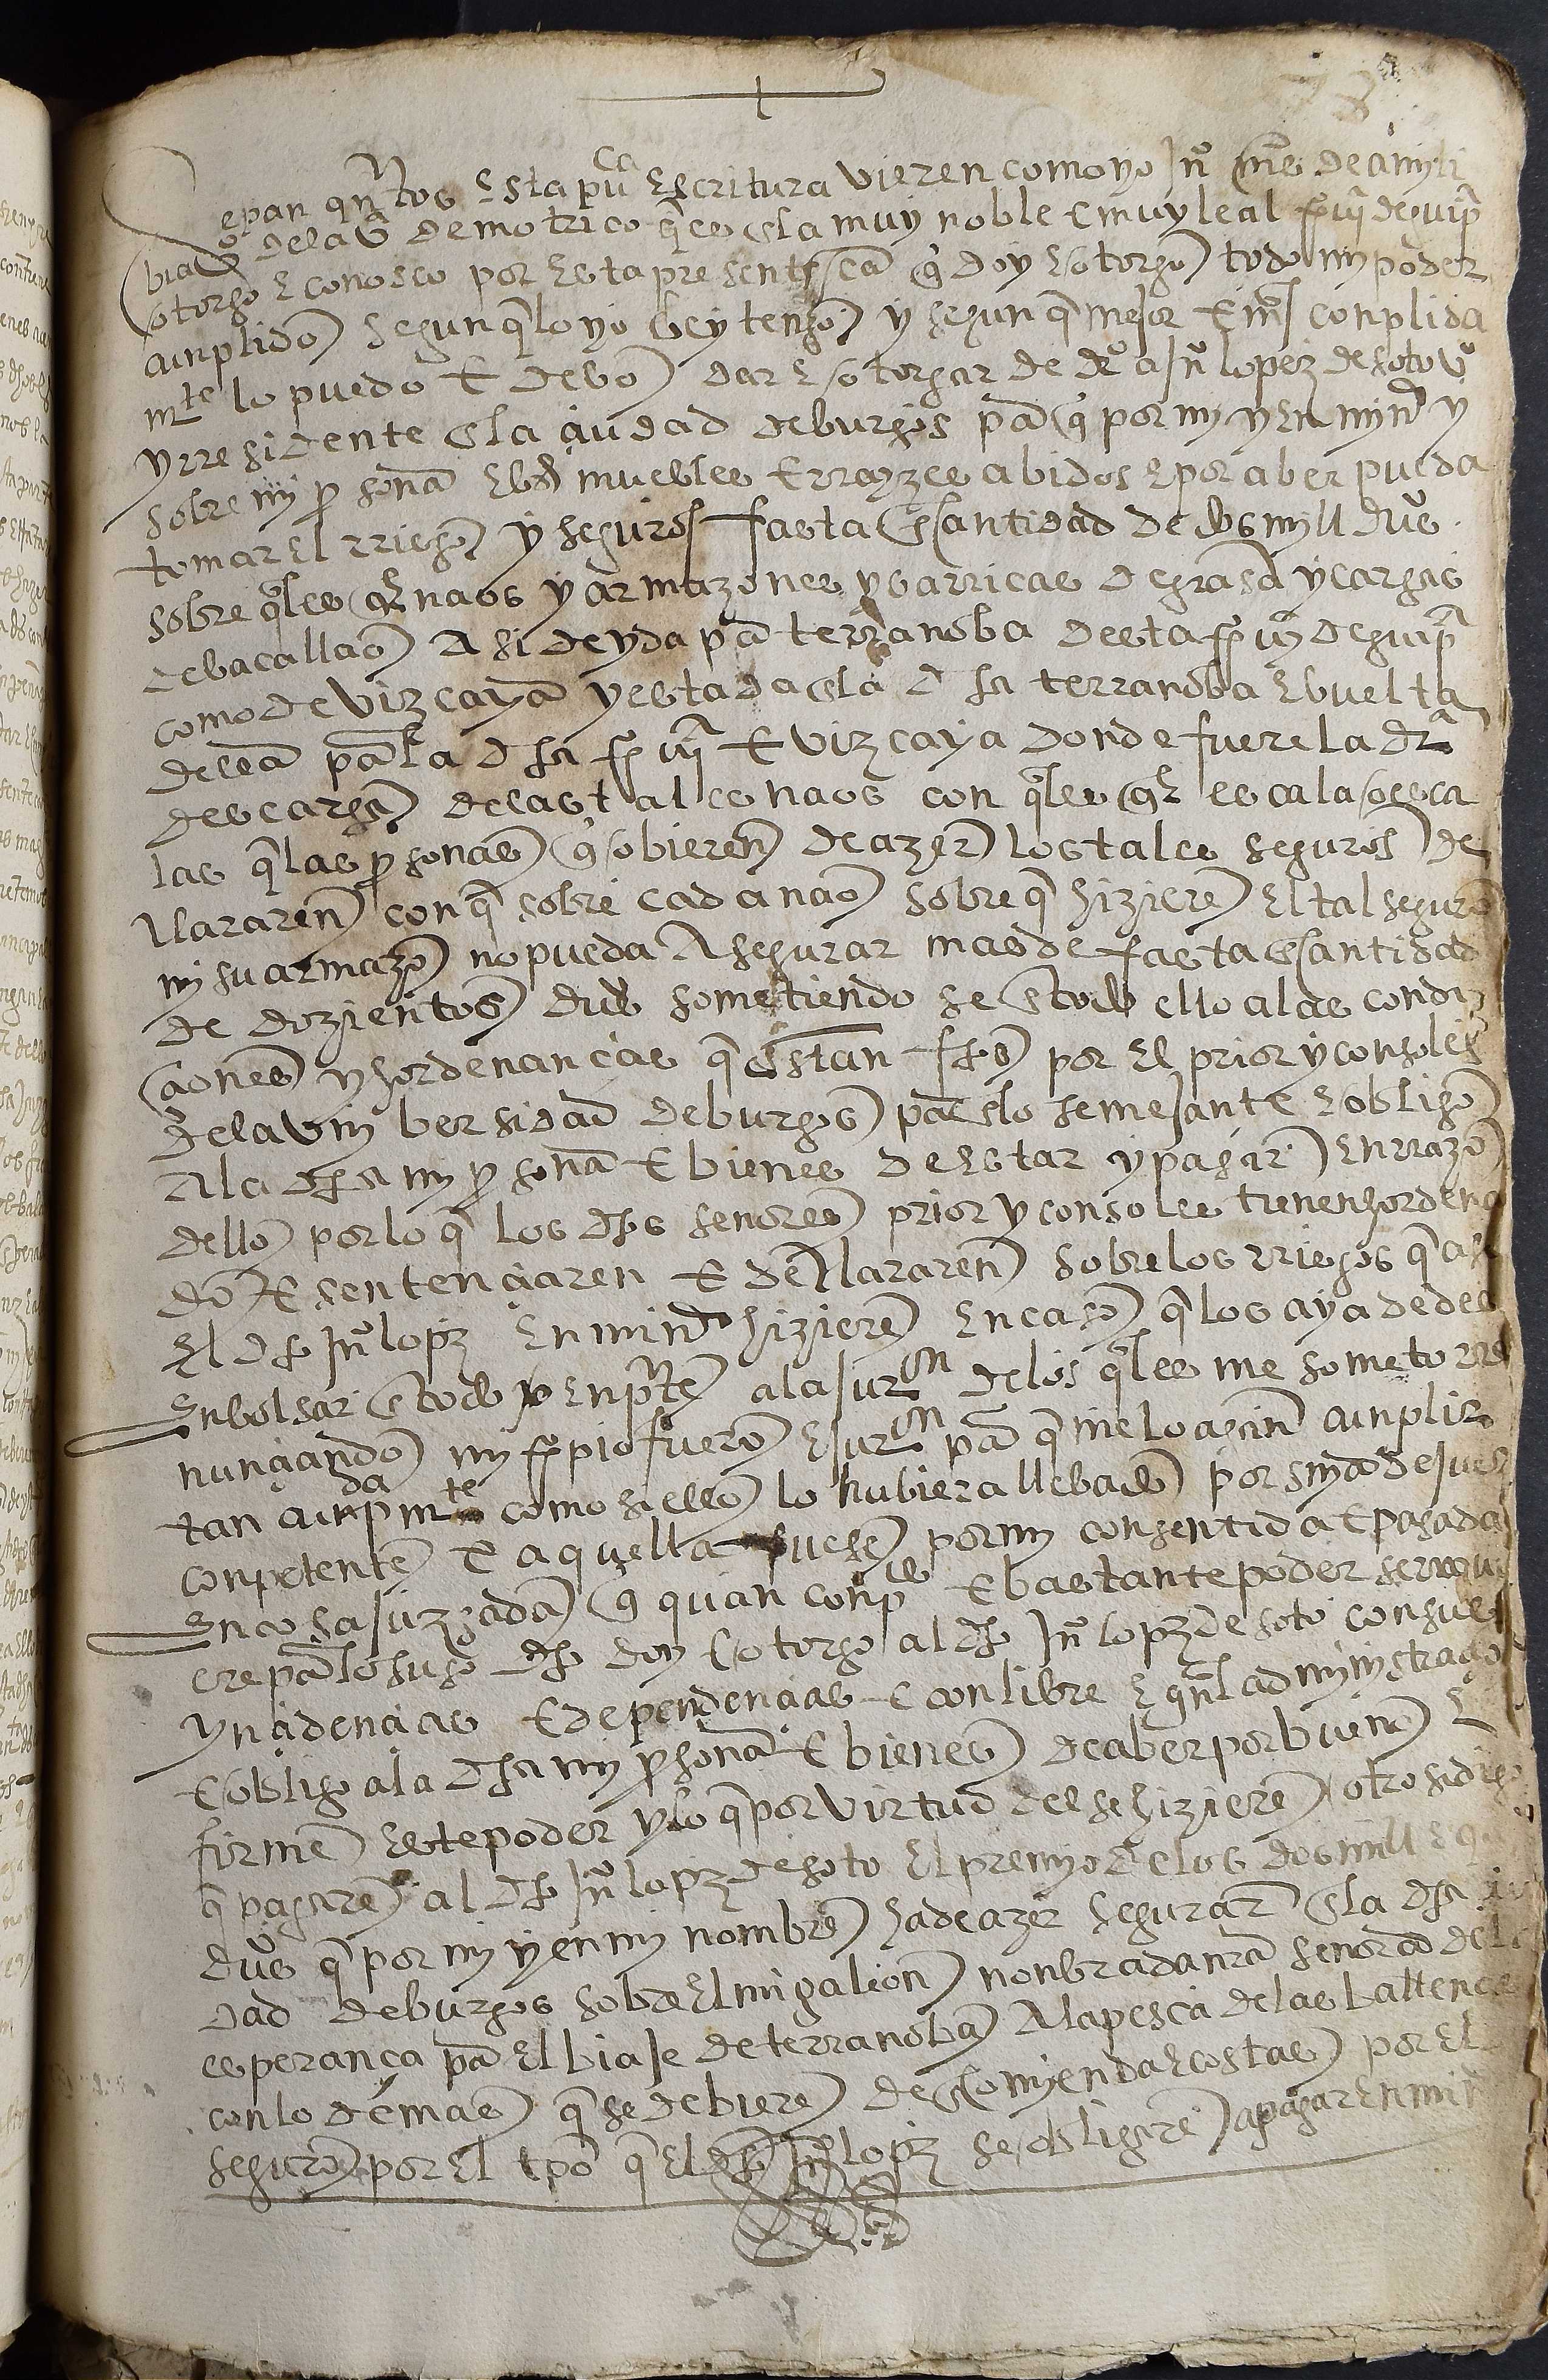 Sepan qntos Esta puca Escritura vieren como yo Jno mrs de amyli
bia vo dela va de motrico q es Enla muy noble E muy leal proui de guipa
otorgo E conosco por Esta presente carta q doy E otorgo todo my poder
cunplido segun q lo yo he y tengo y segun q mejor E mas conplida
mte lo puedo E debo dar E otorgar de dro a Jno lopez de soto vo
y rresidente Enla ciudad de burgos pa q por my y En my ne y
sobre my persona E bs muebles E rrayzes abidos E por aber pueda
tomar El rriesgo y seguros fasta En cantidad de dos myll dus
sobre qles qr naos y armazones y barricas de grasa y cargas
de bacallao Asi de yda pa terranoba desta proui de guipa
como de vizcaya y estada Enla dha terranoba E buelta
desea pa la dha proui E vizcaya donde fuere la dra
descarga de las tales naos con qles qr escala o esca
las q las personas q obieren de azer los tales seguros de
llararen con q sobre cada nao sobre q hiziere El tal seguro
ny su armazon no pueda Asegurar mas de fasta En cantidad
de dozientos dus sometiendo se En todo ello a las condi
ciones y hordenancias q Estan fhas por El prior y consoles
de la vnybersidad de burgos pa En lo semejante E obligo
A la dha my persona E bienes de Estar y pagar En rrazon
dello por lo q los dhos senores prior y consoles tienen hordena
do E sentenciaren E dellararen sobre los rriesgos q asi
El dho Jno lopz En mi ne hiziere En caso q los aya de des
Enbolsar En todo o En pte a la juron de los qles me someto rre
nunciando my propio fuero E juron pa q me lo agan cunplir
tan cunpdamte como si ello lo hubiera llebado por snya de juez
conpetente E aquella fuese por my consentida E pasada
En cosa juzgada q quan conpdo E bastante poder se rrequi
ere pa lo suso dho doy E otorgo al dho Jno lopz de soto con sus
yncidencias E dependencias E con libre E gnl admynystracion
E obligo a la dha my persona E bienes de aber por bueno E
firme Este poder y lo q por virtud del se hiziere otro si digo
q pagare al dho Jno lopz de soto El premyo de los dos mill
dus q por my y en my nombre ha de azer segurar Enla dha ciu
dad de burgos sobre El mi galeon nonbrada nra senora de la
esperança pa El biaje de terranoba A la pesca de las ballenas
con lo demas q se debiere de Encomyenda E costas por El
seguro por El tpo q El dho Jno lopz se obligare a pagar En mi ne